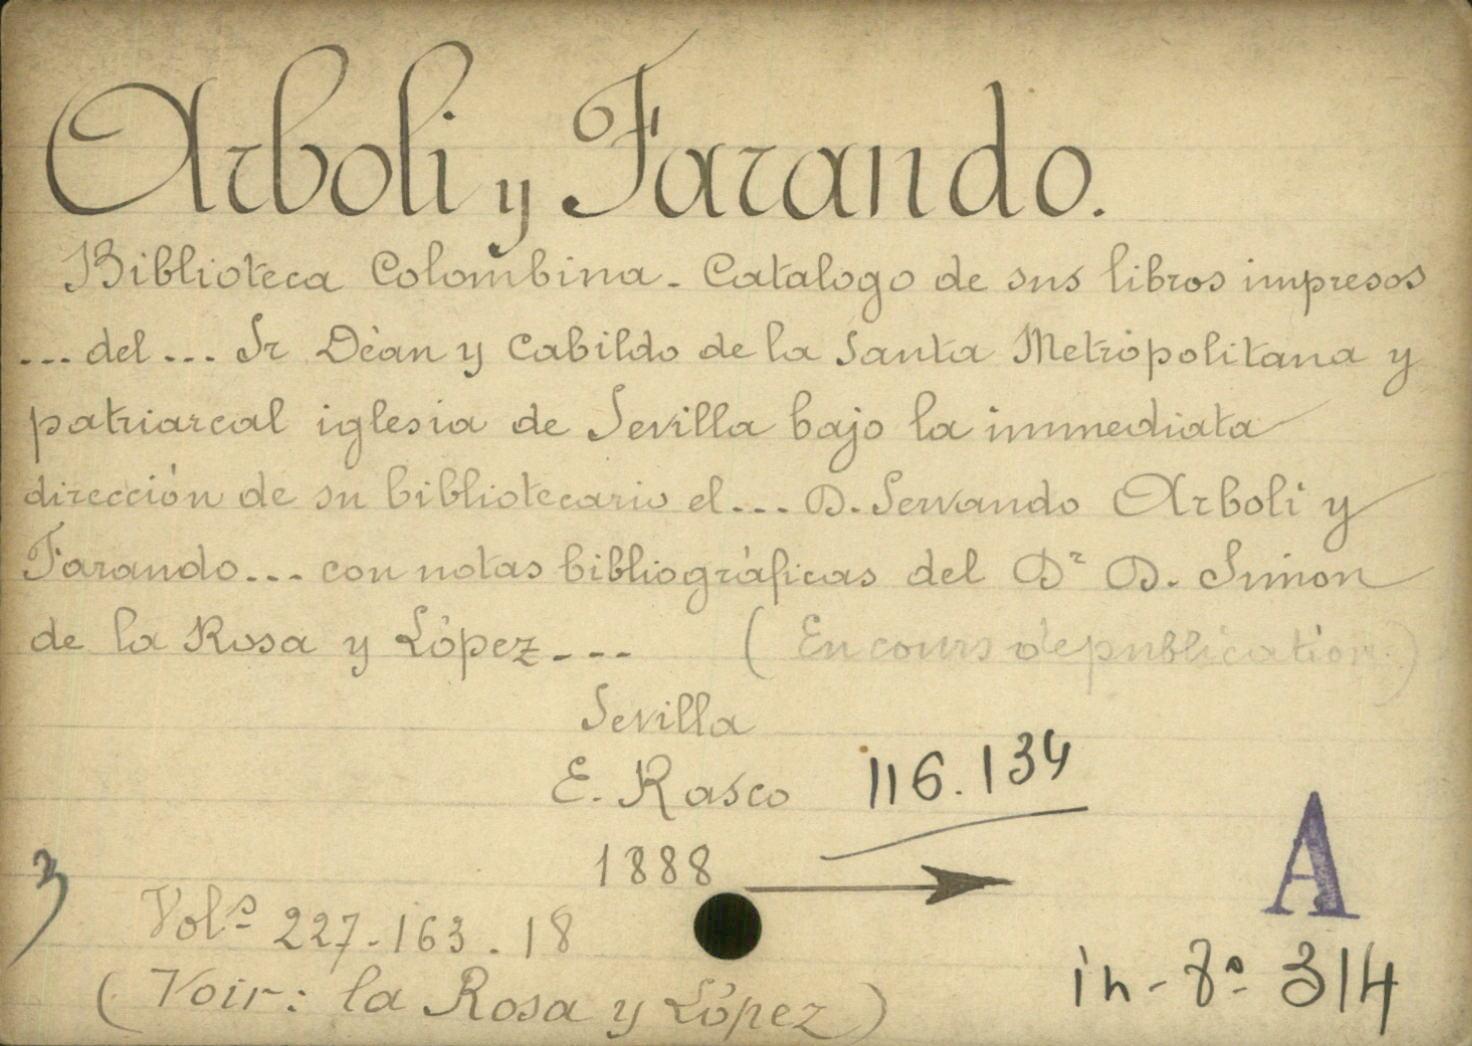 Arboli y Farando.
Biblioteca Colombina - Catalogo de sus libros impresos
... del ... Sr Déan y Cabildo de la Santa Metropolitana y
patriarcal iglesia de Sevilla bajo la immediata
dirección de su bibliotecario el ... D. Servando Arboli y
Farando ... con notas bibliográficas del Dr D. Simon
de la Rosa y López ---- (En cours de publication.)
Sevilla
E. Rasco 116.134
1888
A
3
Vols 227-163.18
in-8º 314
(Voir: la Rosa y López)